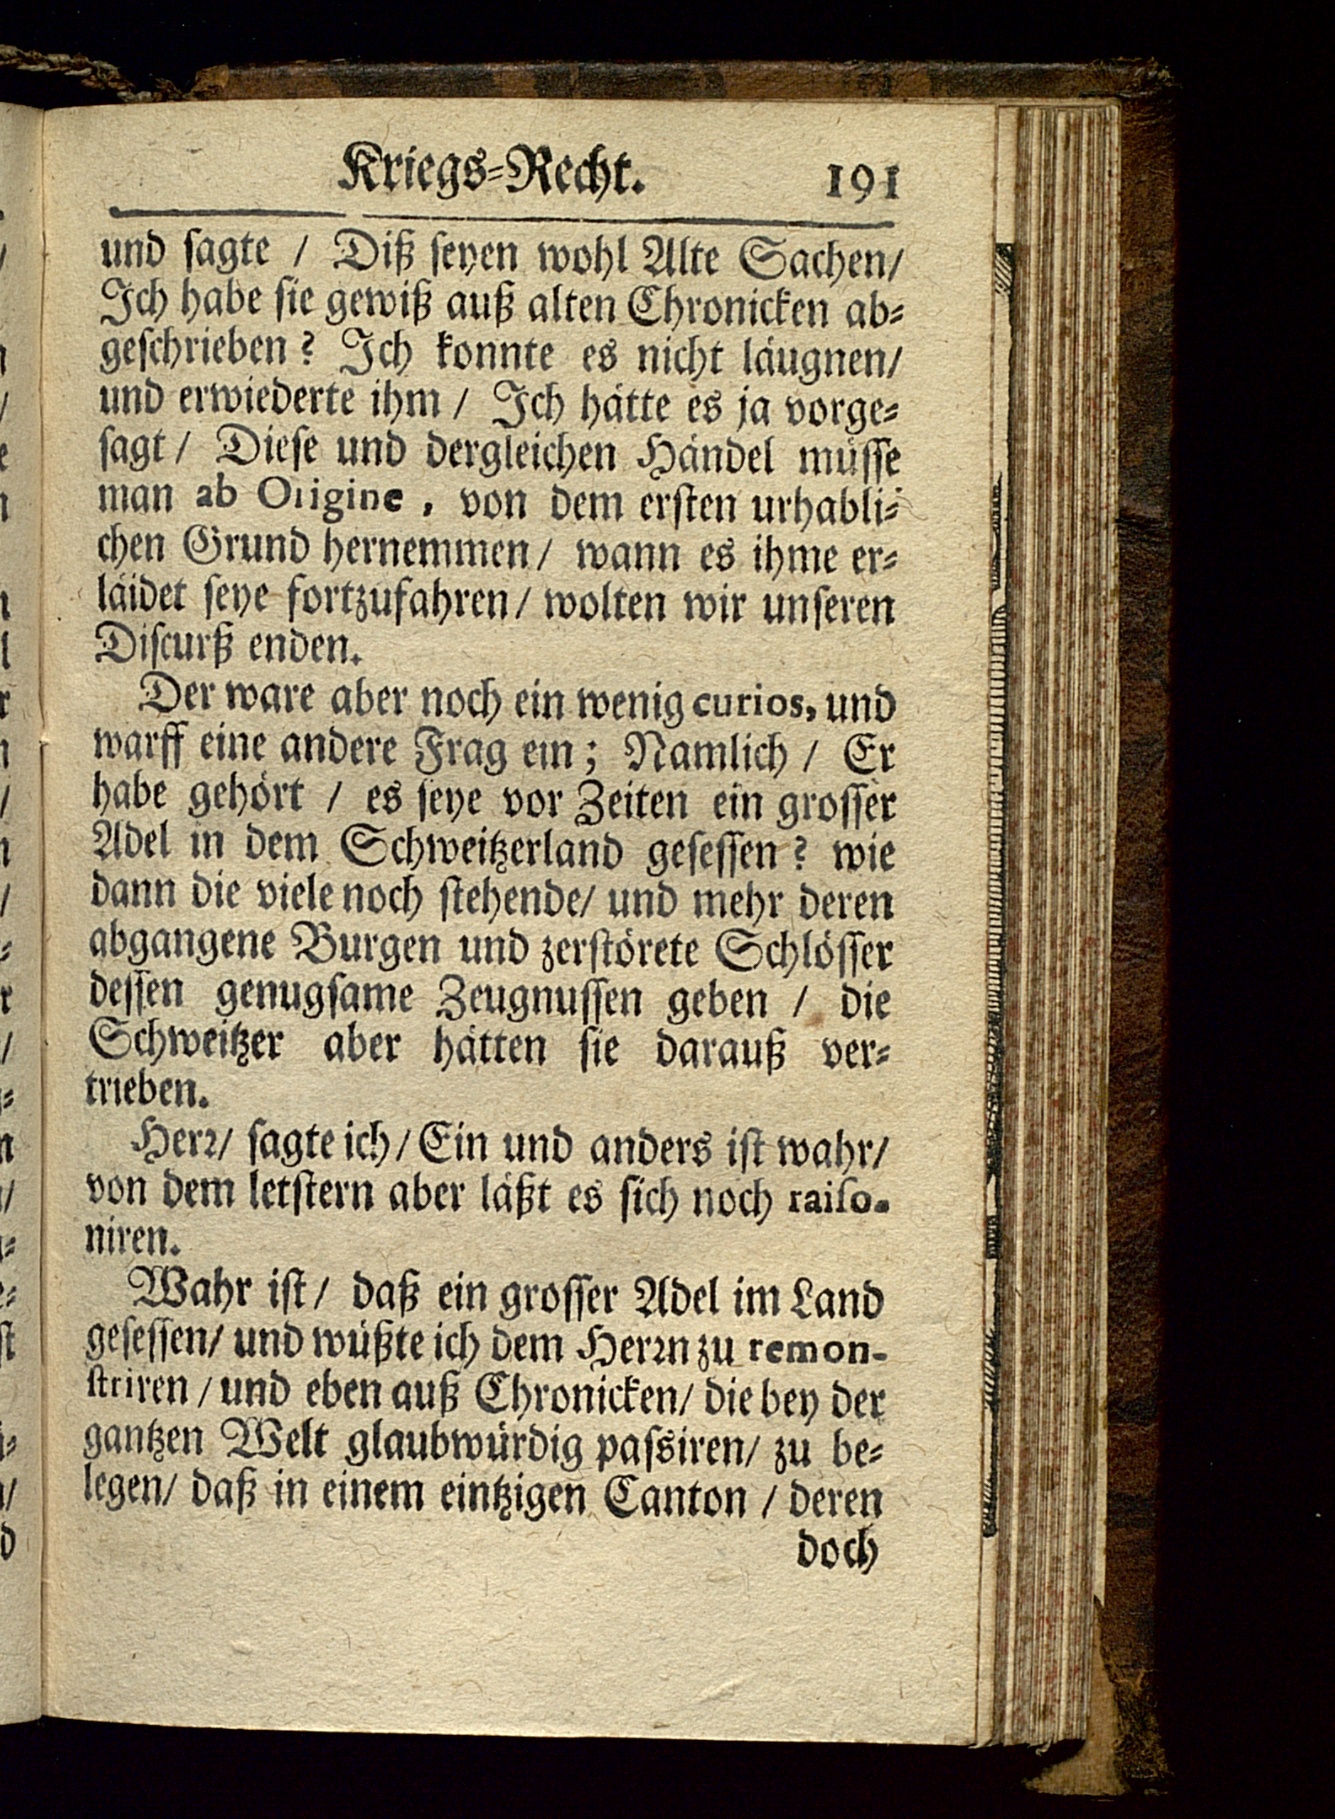 Kriegs-Recht. 191
und sagte / Diß seyen wohl Alte Sachen/
Ich habe sie gewiß auß alten Chronicken ab-
geschrieben? Ich konnte es nicht läugnen/
und erwiederte ihm / Ich hätte es ja vorge-
sagt / Diese und dergleichen Händel müsse
man ab Origine, von dem ersten urhabli-
chen Grund hernemmen/ wann es ihme er-
läidet seye fortzufahren/ wolten wir unseren
Discurß enden.
Der ware aber noch ein wenig curios, und
warff eine andere Frag ein; Namlich / Er
habe gehört / es seye vor Zeiten ein grosser
Adel in dem Schweitzerland gesessen? wie
dann die viele noch stehende/ und mehr deren
abgangene Burgen und zerstörete Schlösser
dessen genugsame Zeugnussen geben / die
Schweitzer aber hätten sie darauß ver-
trieben.
Herr/ sagte ich/ Ein und anders ist wahr/
von dem letstern aber läßt es sich noch raiso-
niren.
Wahr ist / daß ein grosser Adel im Land
gesessen/ und wüßte ich dem Herrn zu remon-
striren / und eben auß Chronicken/ die bey der
gantzen Welt glaubwürdig passiren/ zu be-
legen/ daß in einem eintzigen Canton / deren
doch